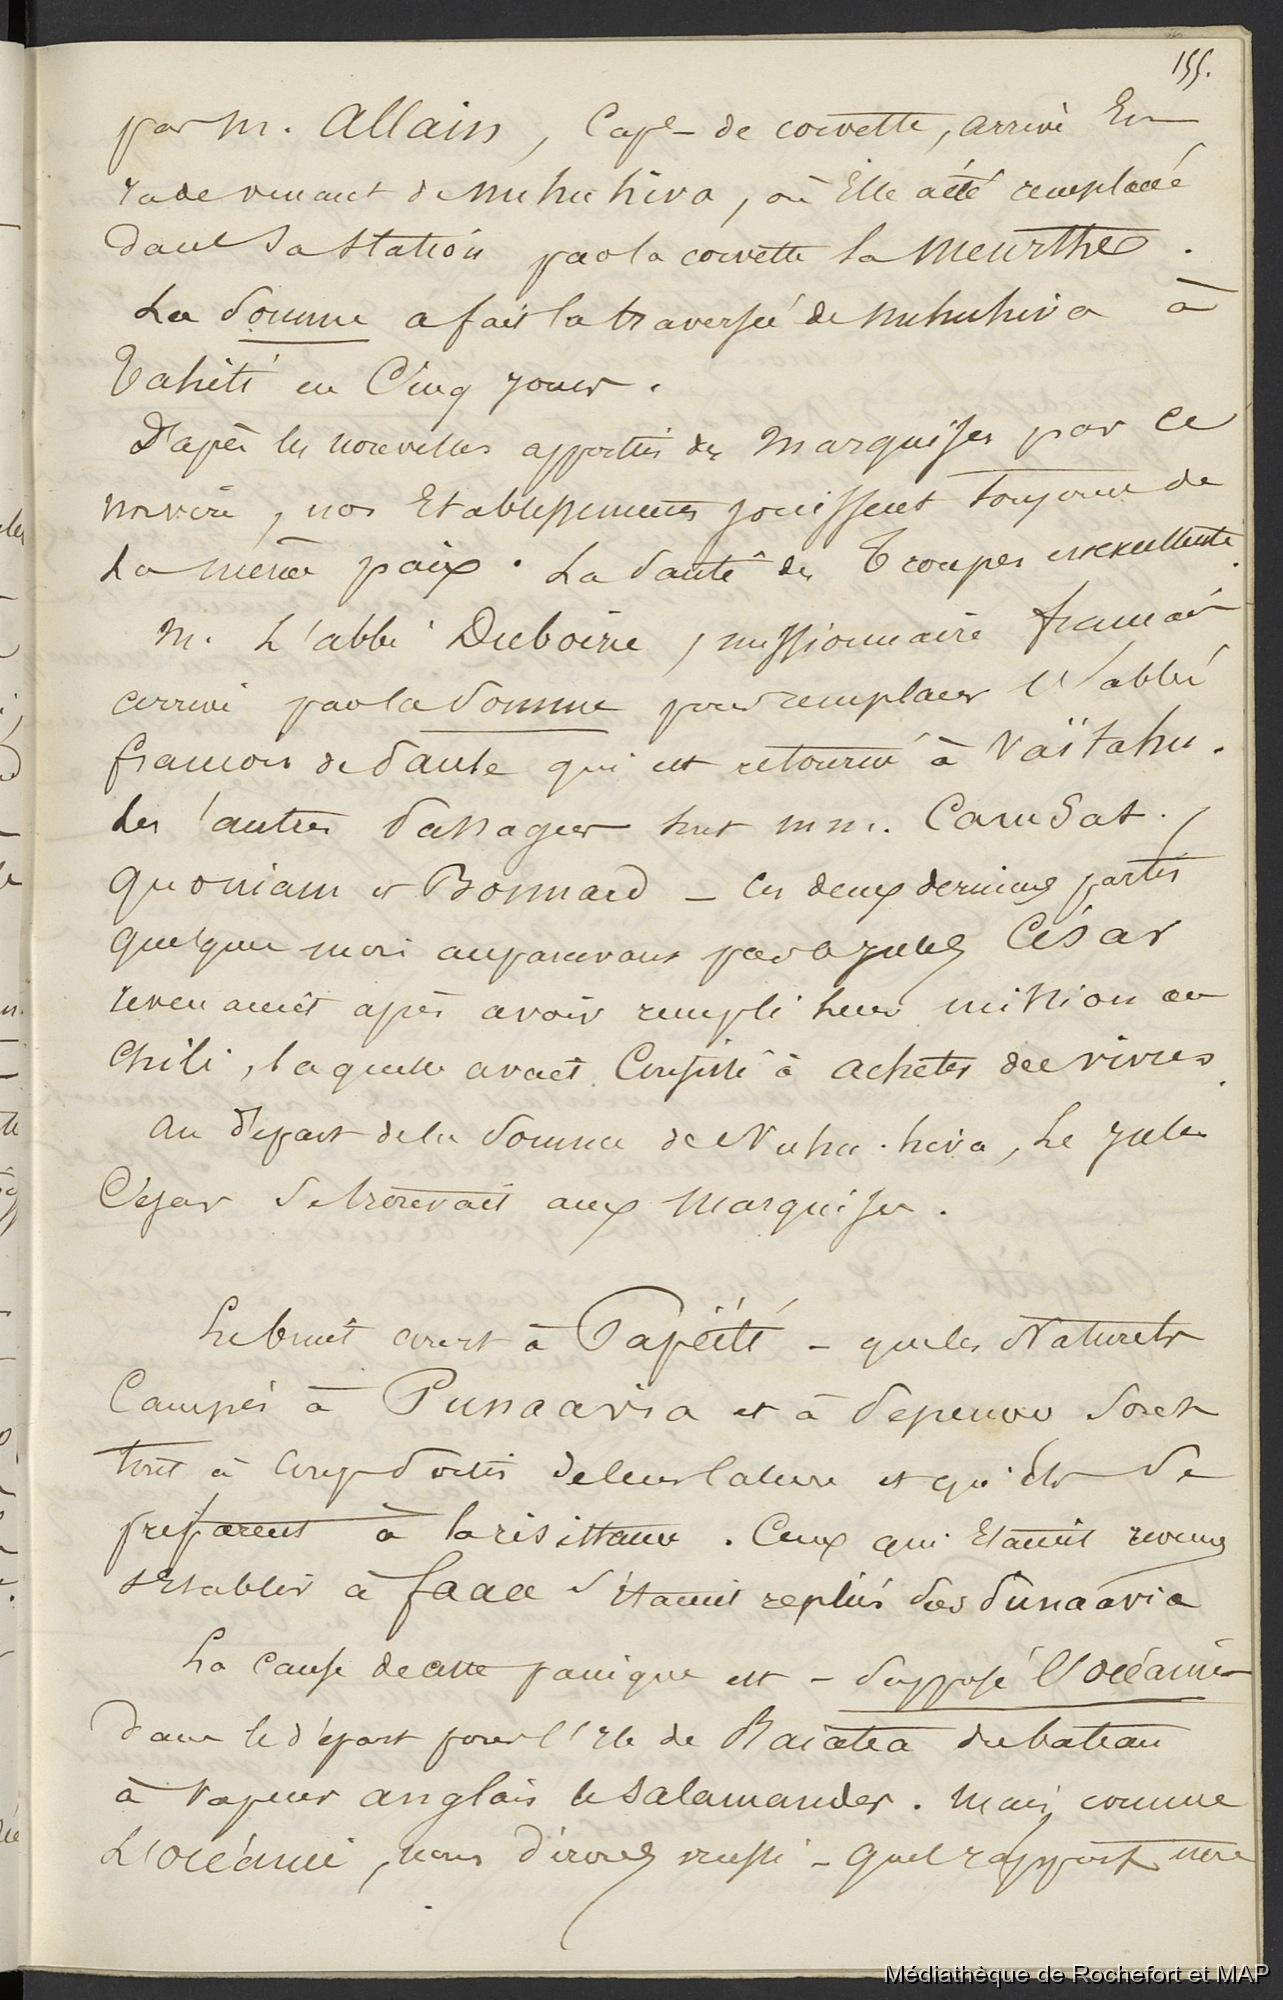 155.
par M. Allain, Cape de corvette, arrivé En
rade venant de nuhuhiva, où Elle a été remplacée
dans sa station par la corvette la Meurthe.
La Somme a fait la traversée de nuhuhiva à
Tahiti en Cinq jours.
D'après les nouvelles apportées des Marquises par ce
navire, nos Etablissements jouissent toujours de
la même paix. La santé des Troupes est excellente.
M. L'abbé Duboize, missionnaire français
arrivé par la Somme pour remplacer l'abbé
françois de Paule qui est retourné à Vaïtahu.
Les autres passagers sont mm. Carusat,
Quoniam et Bonnard – ces deux derniers partis
quelques mois auparavant par le Jules César
revenaient après avoir rempli leur mission au
Chili, laquelle avait Consisté à acheter des vivres.
Au départ de la Somme de Nuhu-hiva, le Jules
César se trouvait aux Marquises.
Le bruit court à Papéïté – que les Naturels
Campés à Punaavia et à Papenoo sont
tout à coup sortis de leur calme et qu'ils se
préparent à la résistance. Ceux qui Etaient revenus
s'Etablir à faaa s'étaient repliés sur Punaavia
La cause de cette panique est – suppose l'océanie
dans le départ pour l'Ile de Raiatea du bateau
à vapeur anglais le Salamander. Mais, comme
L'océanie, nous dirons aussi – quel rapport une
Médiathèque de Rochefort et MAP